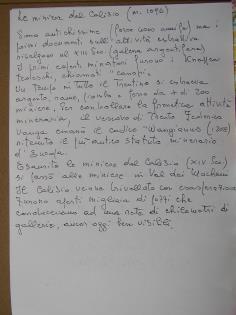 Le miniere del Calisio (m. 1096)
Sono antichissime (forse 1000 anni fa) ma i
primi documenti sull'attività estrattiva
risalgono al XIII Sec (galena argentifera)
I primi esperti minatori furono i Knappen
Tedeschi, chiamati "canopi".
Un Tempo in tutto il Trentino si estraeva
argento, rame, piombo e ferro da + di 200
miniere. Per controllare la frenetica attività
mineraria, il vescovo di Trento Federico
Vanga emanò il codice "Wangianus" (1208)
ritenuto il più antico statuto minerario
d'Europa.
Esaurite le miniere del Calisio (XIV Sec)
si passò alle miniere in Val dei Mocheni
Il Calisio venne trivellato con
Furono aperti migliaia di pozzi che
conducevano ad una rete di chilometri di
gallerie, ancor oggi ben visibili.